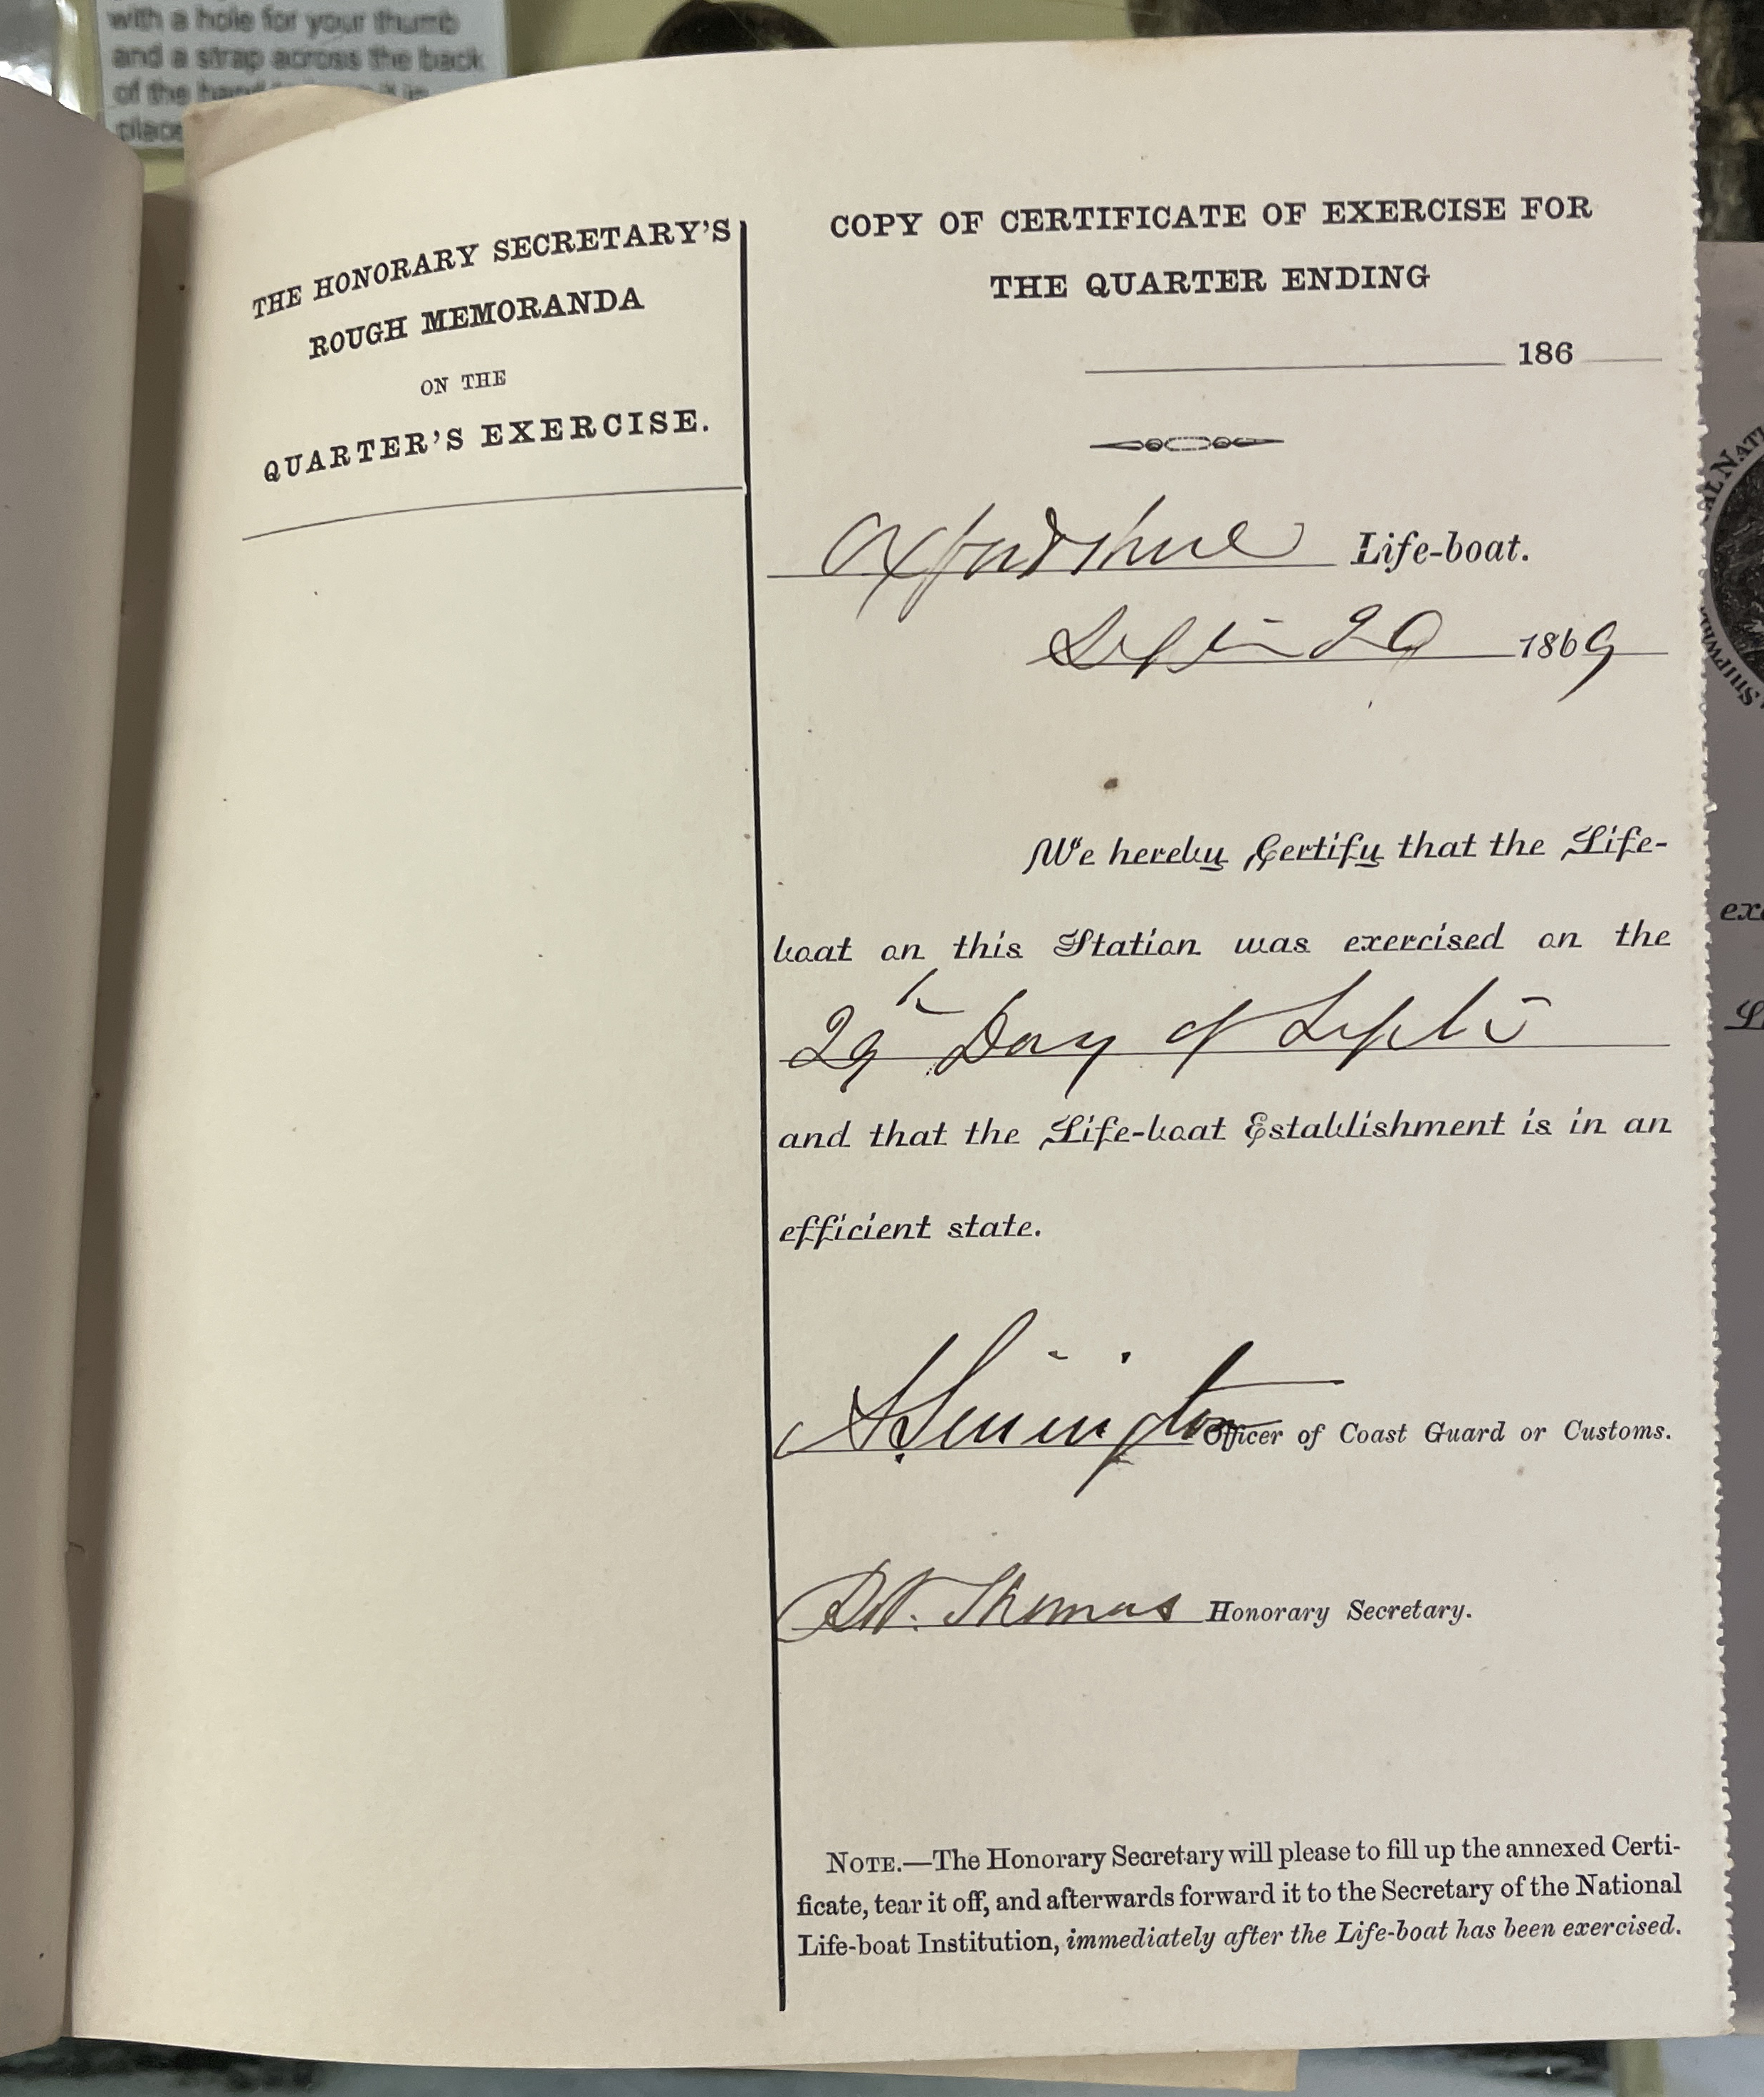 with a hole for your thumb
and a strap across the back
of the
place
THE HONORARY SECRETARY'S
ROUGH MEMORANDA
ON THE
QUARTER'S EXERCISE.
COPY OF CERTIFICATE OF EXERCISE FOR
THE QUARTER ENDING
186
Oxfordshire Life-boat.
1869
We hereby Certify that the Life-
boat on this Station was exercised on the
29th Day of Septr
and that the Life-boat Establishment is in an
efficient state.
Officer of Coast Guard or Customs.
Thomas Honorary Secretary.
NOTE.—The Honorary Secretary will please to fill up the annexed Certi-
ficate, tear it off, and afterwards forward it to the Secretary of the National
Life-boat Institution, immediately after the Life-boat has been exercised.